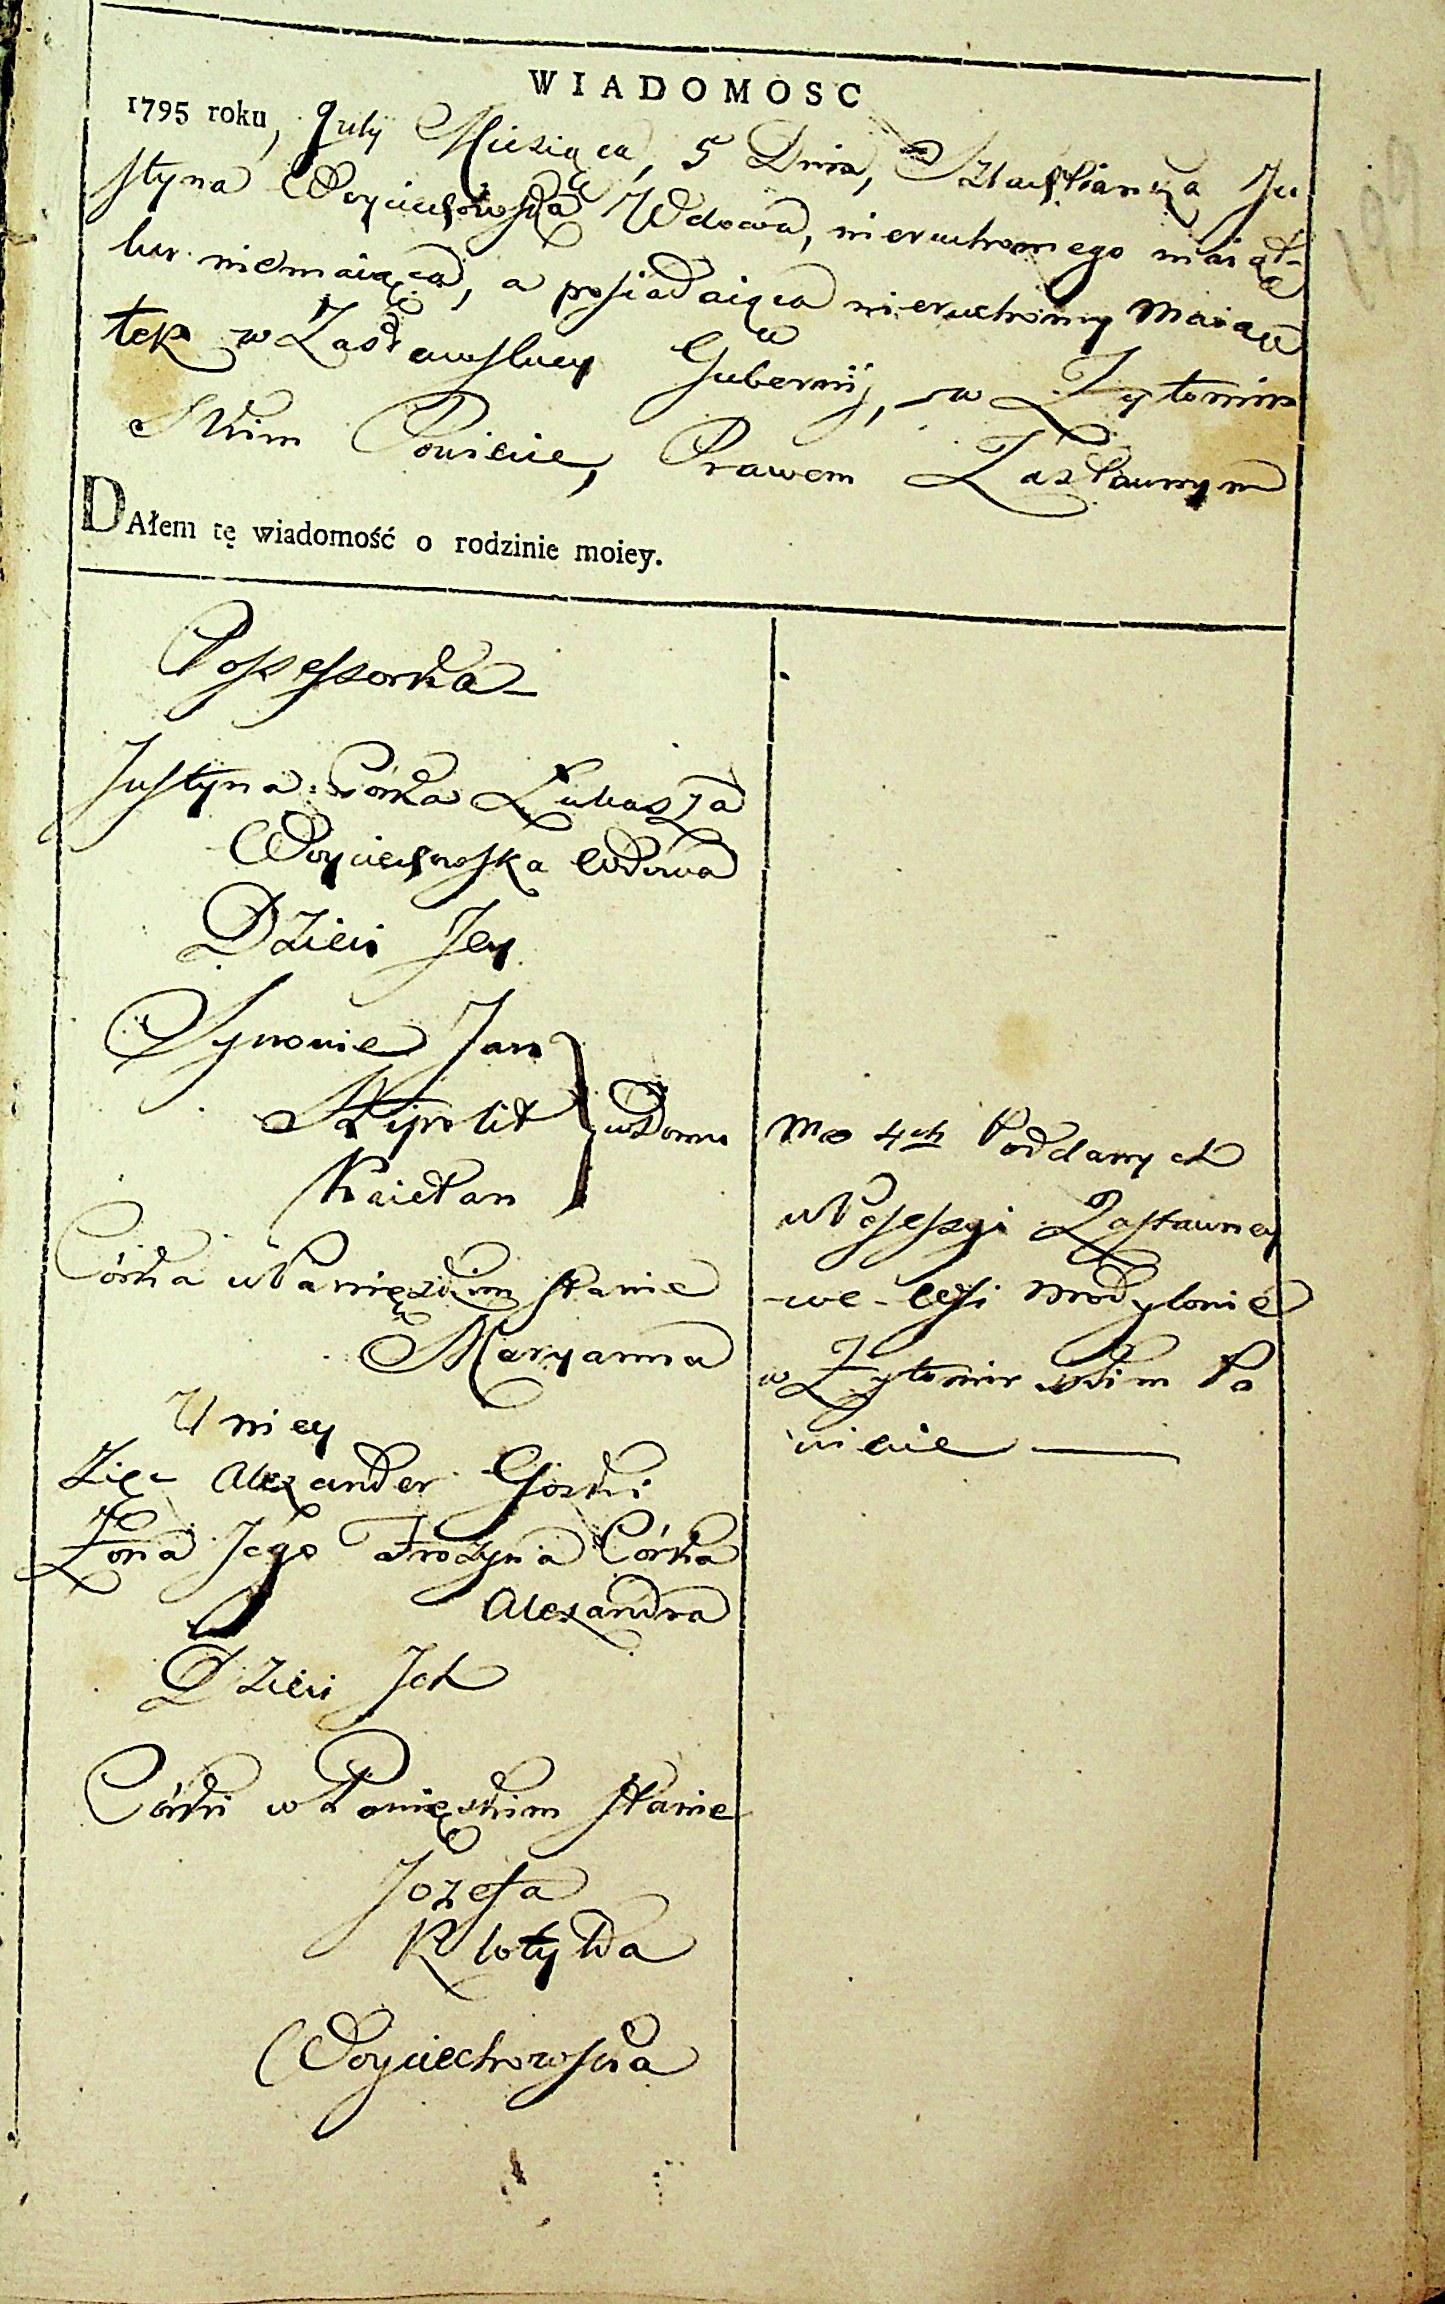 WIADOMOSC
1795 roku, July Miesiąca, 5 Dnia, Szlachcianka Ju
styna Woyciechowska Wdowa, nieruchomego maiąt-
ku niemaiąca, a posiadaiąca nieruchomy Maią
tek w Zasławskiey Gubernij, w Żytomirs
Skim Powiecie, Prawem Zastawnym
DAłem tę wiadomość o rodzinie moiey.
Possessorka
Justyna Córka Łukasza
Woyciechowska Wdowa
Dzieci Jey
Synowie Jan
Hipolit } w Domu
Kaietan
Córka w Panięskim stanie
Maryanna
U niey
Zięc Alexander Gorski
Żona Jego Córka
Alexandra
Dzieci Ich
Córki w Panięskim stanie
Jozefa
Klotylda
Woyciechowska
Ma 4ch Poddanych
w Posessyi Zastawney
we Wsi
w Żytomirskim Po
wiecie